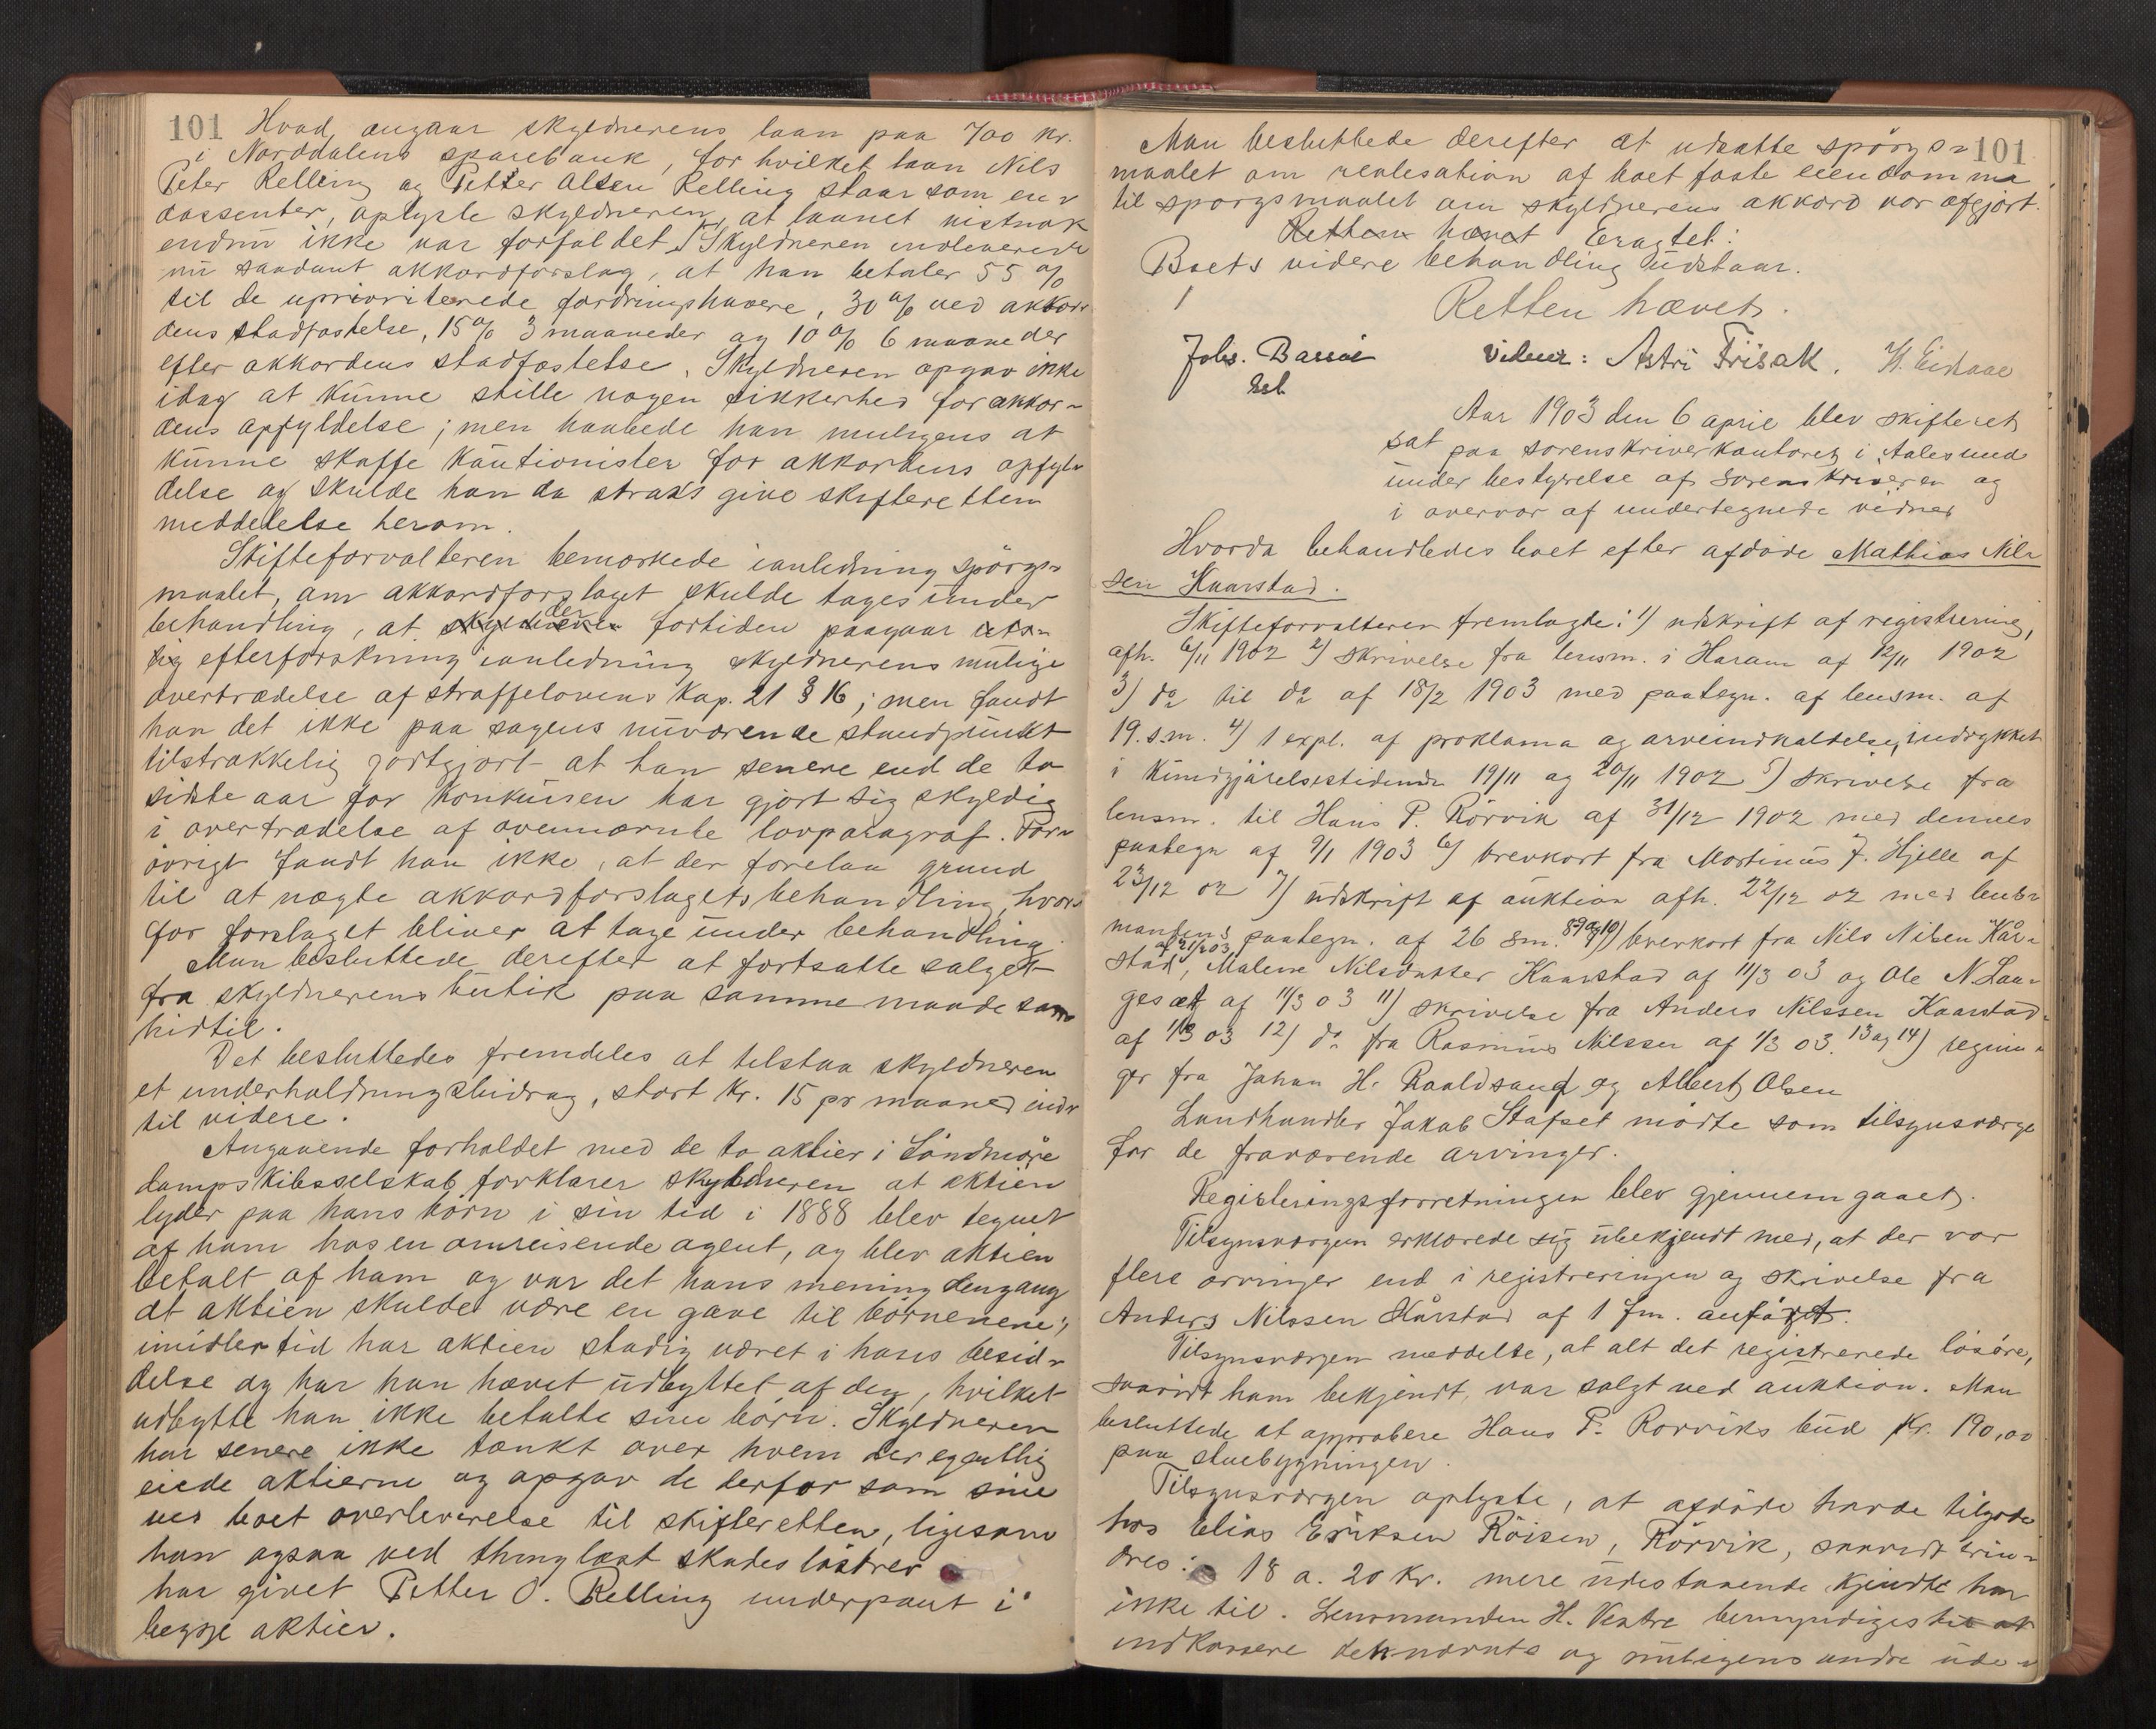 101 Hvad angaar skyldnerens laan paa 700 kr.
i Norddalens sparebank, for hvilket laan Nils
Peter Relling og Petter Olsen Relling staar som en-
dossenter, oplyste skyldneren, at laanet vistnok
endnu ikke var forfaldet. Skyldneren indleverede
nu saadant akkordforslag, at han betaler 55 %
til de uprioriterede fordringshavere, 30 % ved akkor-
dens stadfæstelse, 15 % 3 maaneder og 10 % 6 maaneder
efter akkordens stadfæstelse. Skyldneren opgav ikke
idag at kunne stille nogen sikkerhed for akkor-
dens opfyldelse; men haabede han muligens at
kunne skaffe kautionister for akkordens opfyl-
delse og skulde han da straks give skifteretten
meddelelse herom.
Skifteforvalteren bemærkede i anledning spörgs-
maalet, om akkordforslaget skulde tages under
behandling, at der fortiden paagaar
efterforskning i anledning skyldnerens mulige
overtrædelse af straffelovens Kap. 21 § 16; men fandt
han det ikke paa sagens nuværende standpunkt
tilstrækkelig godtgjort at han senere end de to
sidste aar før konkursen har gjort sig skyldig
i overtrædelse af ovennævnte lovparagraf. For-
övrigt fandt han ikke, at der forelaa grund
til at nægte akkordforslagets behandling, hvor-
for forslaget bliver at tage under behandling.
Man besluttede derefter at fortsætte salget
fra skyldnerens butik paa samme maade som
hidtil.
Det besluttedes fremdeles at tilstaa skyldneren
et underholdningsbidrag, stort kr. 15 pr maaned ind-
til videre.
Angaaende forholdet med de to aktier i Söndmöre
dampskibsselskab forklarer skyldneren at aktien
lyder paa hans börn i sin tid i 1888 blev tegnet
af ham hos en omreisende agent, og blev aktien
betalt af ham og var det hans mening dengang
at aktien skulde være en gave til börnenene;
imidlertid har aktien stadig været i hans besid-
delse og har han hævet udbyttet af den, hvilket
udbytte han ikke betalte sine börn. Skyldneren
har senere ikke tænkt over hvem der egentlig
eiede aktierne og opgav de derfor som sine
ved boet overleverelse til skifteretten, ligesom
han ogsaa ved thinglæst skadeslösbrev
har givet Petter O. Relling underpant i
begge aktier.
Man besluttede derefter at udsætte spörgs- 101
maalet om realisation af boet faste eiendomme
til spørgsmaalet om skyldnerens akkord var afgjort.
Retten hævet Eragtet:
Boets videre behandling udstaar.
Retten hævet.
Johs. Bassøe Vidner: Astri Frisak. H. Eidaae
Aar 1903 den 6 april blev skifteret
sat paa sorenskriverkontoret i Aalesund
under bestyrelse af sorenskriveren og
i overvær af undertegnede vidner
Hvorda behandledes boet efter afdøde Mathias Nil-
sen Kaarstad.
Skifteforvalteren fremlagde: 1) udskrift af registrering,
afh. 6/11 1902 2) Skrivelse fra lensm. i Haram af 12/11 1902
3) do til do af 18/2 1903 med paategn. af lensm. af
19. s.m. 4) 1 expl. af proklama og arveindkaldelse, indrykket
i Kundgjörelsestidende 19/11 og 20/11 1902 5) Skrivelse fra
lensm. til Hans P. Rörvik af 31/12 1902 med dennes
paategn af 9/1 1903 6) brevkort fra Martinus J. Hjelle af
23/12 02 7) udskrift af auktion afh. 22/12 02 med lens-
mandens paategn. af 26 s.m. 8 9 og 10) brevkort fra Nils Nilsen Kår-
stad, af 21/2 03, Malene Nilsdatter Kaarstad af 11/3 03 og Ole N Lan-
gesæt af 11/3 03 11) skrivelse fra Anders Nilssen Kaarstad
af 1/3 03 12) do fra Rasmus Nilssen af 1/3 03. 13 og 14) regnin-
ger fra Johan H. Roaldsand og Albert Olsen
Landhandler Jakob Stafset mödte som tilsynsværge
for de fraværende arvinger.
Registreringsforretningen blev gjennemgaaet.
Tilsynsværgen erklærede sig ubekjendt med, at der var
flere arvinger end i registreringen og skrivelse fra
Anders Nilssen Kårstad af 1 f.m. anfört.
Tilsynsværgen meddelte, at alt det registrerede lösöre,
saavidt ham bekjendt, var solgt ved auktion. Man
besluttede at approbere Hans P. Rorviks bud Kr. 190,00
paa stuebygningen.
Tilsynsværgen oplyste, at afdöde havde tilgode
hos Elias Eriksen Röisen, Rörvik, saavidt erin-
dres: 18 a. 20 kr. mere udestaaende kjendte han
ikke til. Lensmanden H. Vestre bemyndiges til at
indkassere det nævnte og muligens andre ude-